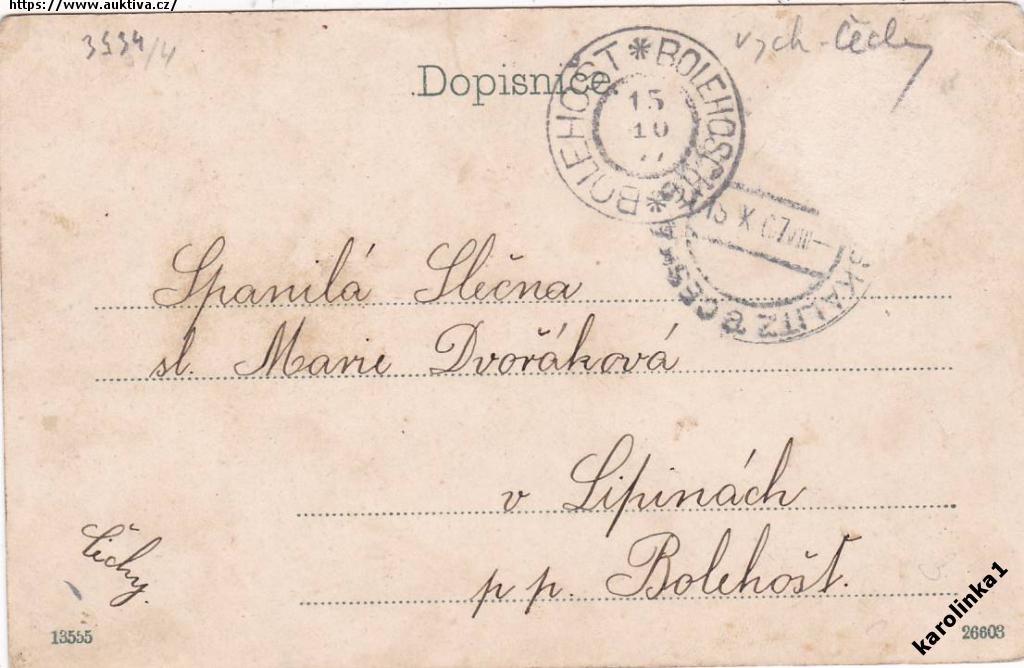 https://www.auktiva.cz/
3534/4
vych-Čechy
Dopisnice.
BOLEHOŠT * BOLEHOSCHT *
15
10
SKALITZ ČESKÁ
X 07 VIII
Spanilá Slečna
sl. Marie Dvořáková
v Lipinách
p p. Bolehošt.
Čechy.
13555
26603
karolinka1